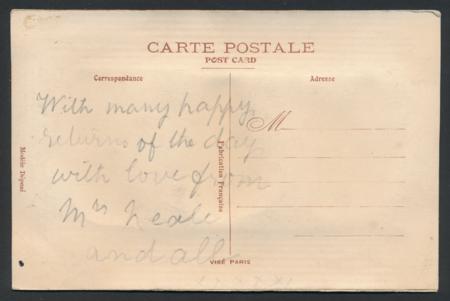 CARTE POSTALE
POST CARD
Correspondance
Adresse
With many happy
returns of the day
with love from
Mrs Neale
and all
M
Modèle Déposé
Fabrication Française
VISÉ PARIS